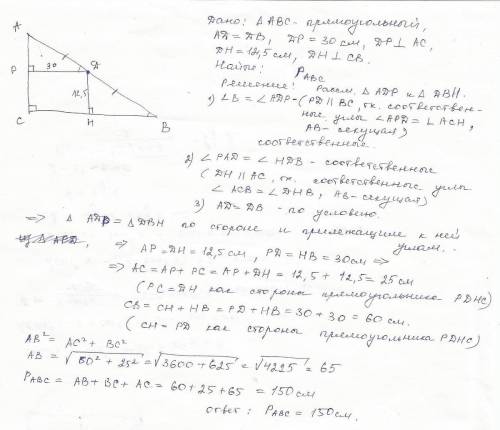 A
P
30
D
12,5
C
H
B
Дано: △ ABC - прямоугольный,
AD = DB, DP = 30 см, DP ⊥ AC,
DH = 12,5 см, DH ⊥ CB.
Найти: P ABC
Решение: Рассм. △ ADP и △ DBH.
1) ∠B = ∠ADP - (PD ∥ BC, т.к. соответствен-
ные углы ∠APD = ∠ACH,
AB - секущая)
соответственные.
2) ∠PAD = ∠HDB - соответственные
(DH ∥ AC, т.к. соответственные углы
∠ACB = ∠DHB, AB - секущая)
3) AD = DB - по условию.
=> △ ADP = △DBH по стороне и прилежащие к ней
углам.
=> AP = DH = 12,5 см, PD = HB = 30 см =>
=> AC = AP + PC = AP + DH = 12,5 + 12,5 = 25 см
(PC = DH как стороны прямоугольника PDHC)
CB = CH + HB = PD + HB = 30 + 30 = 60 см.
(CH = PD как стороны прямоугольника PDHC)
AB² = AC² + BC²
AB = √60² + 25² = √3600 + 625 = √4225 = 65
P ABC = AB + BC + AC = 60 + 25 + 65 = 150 см
ответ: P ABC = 150 см.